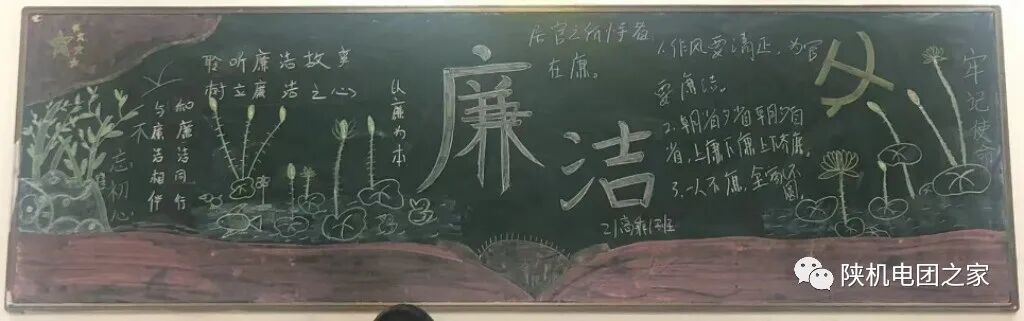 聆听廉洁故事
树立廉洁之心
不忘初心
和廉洁同行
与廉洁相伴
以廉为本
廉洁
居官之所恃者
在廉。
1.作风要清正,为官
要廉洁。
2.朝省夕省朝夕自
省,上廉下廉上下齐廉。
3.一人不廉,全家不圆
21高职1班
牢记使命
陕机电团之家